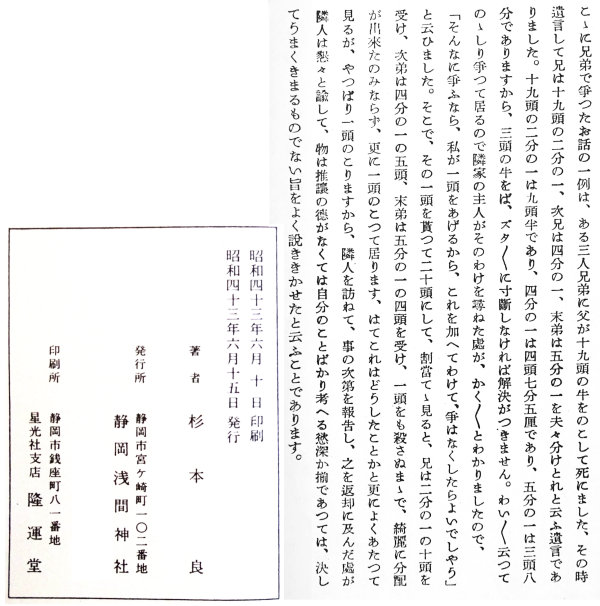 こゝに兄弟で爭つたお話の一例は、ある三人兄弟に父が十九頭の牛をのこして死にました、その時
遺言して兄は十九頭の二分の一、次兄は四分の一、末弟は五分の一を夫々分けとれと云ふ遺言であ
りました。十九頭の二分の一は九頭半であり、四分の一は四頭七分五厘であり、五分の一は三頭八
分でありますから、三頭の牛をば、ズタ〳〵に寸斷しなければ解決がつきません。わい〳〵云つて
のゝしり爭つて居るので隣家の主人がそのわけを尋ねた處が、かく〳〵とわかりましたので、
「そんなに爭ふなら、私が一頭をあげるから、これを加へてわけて、爭はなくしたらよいでしやう」
と云ひました。そこで、その一頭を貰つて二十頭にして、割當てゝ見ると、兄は二分の一の十頭を
受け、次弟は四分の一の五頭、末弟は五分の一の四頭を受け、一頭をも殺さぬまゝで、綺麗に分配
が出來たのみならず、更に一頭のこつて居ります、はてこれはどうしたことかと更によくあたつて
見るが、やつぱり一頭のこりますから、隣人を訪ねて、事の次第を報告し、之を返却に及んだ處が
隣人は懇々と諭して、物は推讓の德がなくては自分のことばかり考へる慾深か揃であつては、決し
てうまくきまるものでない旨をよく説ききかせたと云ふことであります。
昭和四十三年六月 十 日 印刷
昭和四十三年六月十五日 発行
著者 杉本 良
発行所 静岡市宮ケ崎町一〇二番地
静岡浅間神社
印刷所 静岡市銭座町八一番地
星光社支店 隆運堂